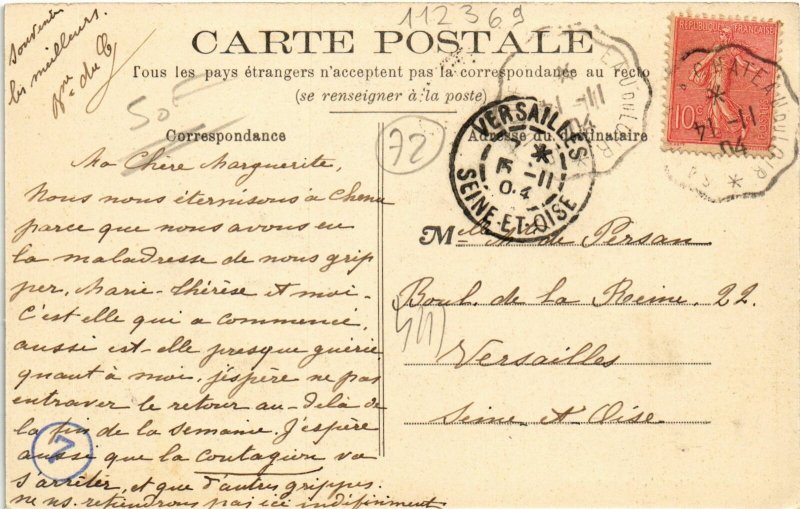 112369
Souvenirs
les meilleurs.
CARTE POSTALE
Tous les pays étrangers n'acceptent pas la correspondance au recto
(se renseigner à la poste)
50F
72
Correspondance
Adresse du destinataire
RÉPUBLIQUE FRANÇAISE
10c
VERSAILLES
11
04
SEINE-ET-OISE
CHATEAU DU LOIR
11-14
04
Ma Chère Marguerite,
Nous nous éternisons à Chenu
parce que nous avons eu
la maladresse de nous grip
per, Marie-Thérèse et moi-
C'est elle qui a commencé,
aussi est-elle presque guérie
quant à moi, j'espère ne pas
entraver le retour au-delà de
la fin de la semaine. J'espère
aussi que la contagion va
s'arrêter, et que d'autres grippes
ne ns. retiendrons pas ici indéfiniment
Melle de Persan
Boul. de la Reine, 22.
Versailles
Seine et Oise.
7